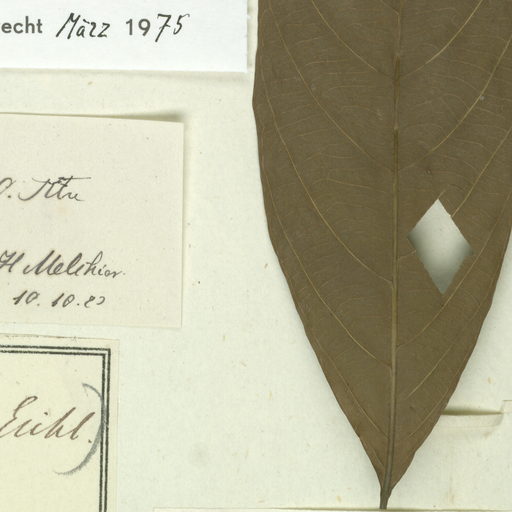 recht März 1975
H Melchior
10. 10. 23
Eichl.)